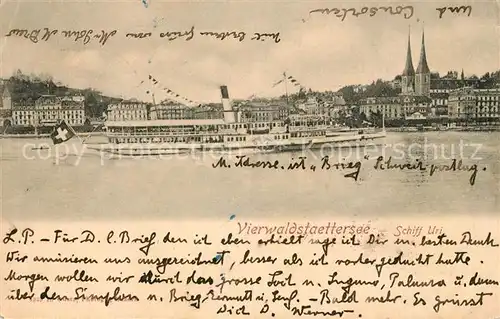 und
Consorten
mit bestem Gruss von Mr John M Drew
M. Adresse ist "Brieg" Schweiz postlag.
Vierwaldstaettersee Schiff Uri
L. P. – Für D. l. Brief den ich eben erhielt sage ich Dir m. besten Dank
Wir amüsieren uns ausgezeichnet, besser als ich vorher gedacht hatte.
Morgen wollen wir durch das grosse Loch n. Lugano, Pallanza u. dann
über den Simplon n. Brieg, Zermatt u. Genf. – Bald mehr. Es grüsst
Dich D. Werner.